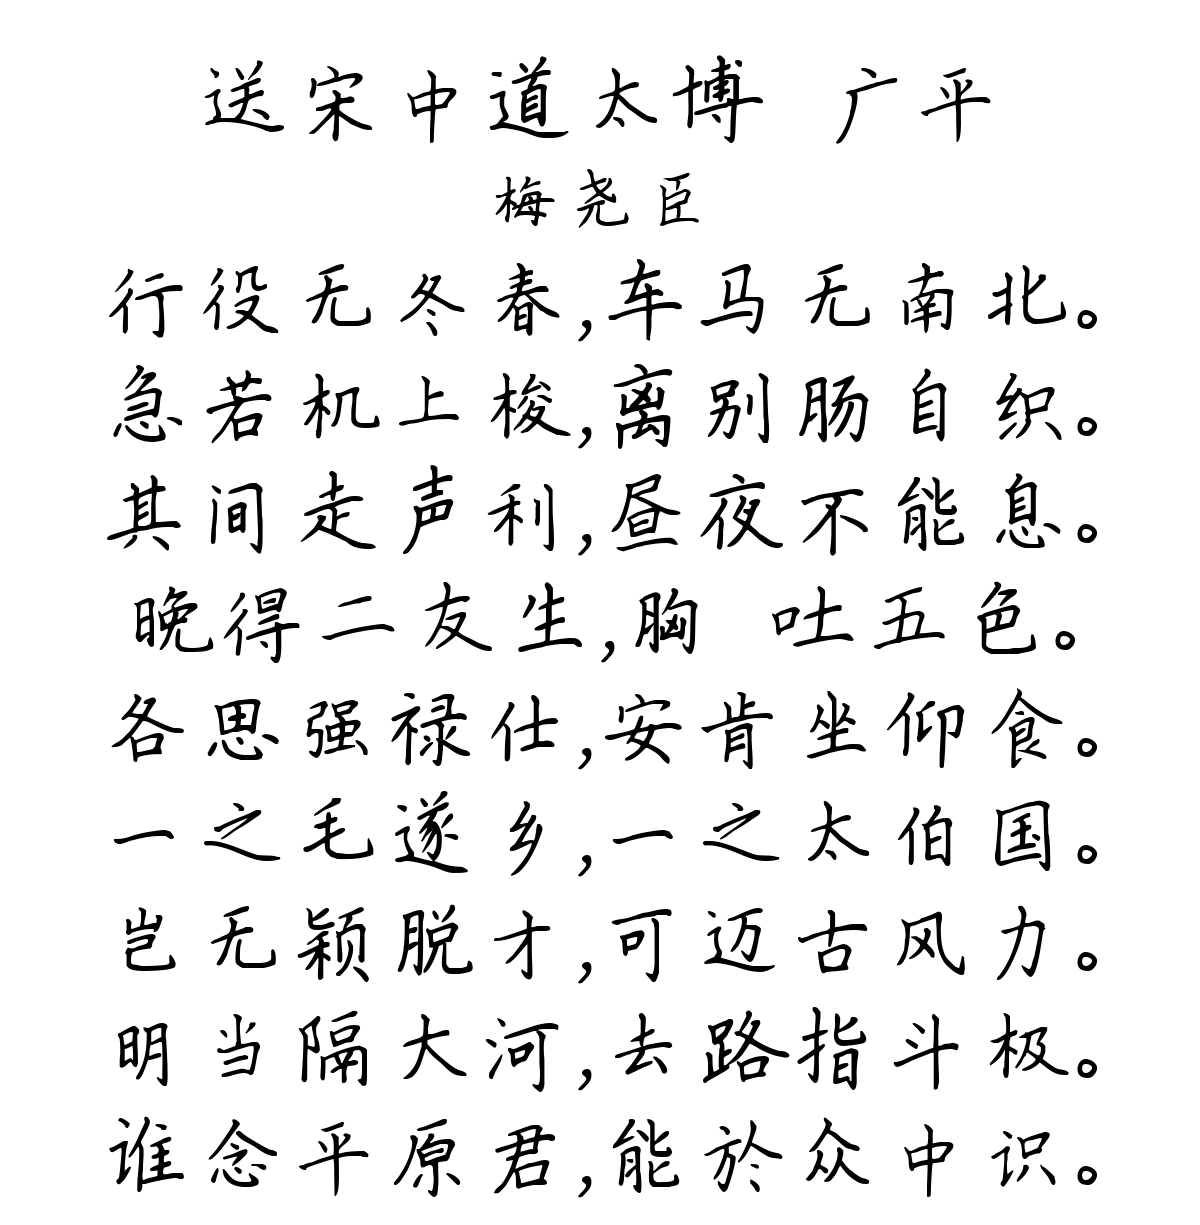 送宋中道太博 广平
梅尧臣
行役无冬春,车马无南北。
急若机上梭,离别肠自织。
其间走声利,昼夜不能息。
晚得二友生,胸 吐五色。
各思强禄仕,安肯坐仰食。
一之毛遂乡,一之太伯国。
岂无颖脱才,可迈古风力。
明当隔大河,去路指斗极。
谁念平原君,能於众中识。